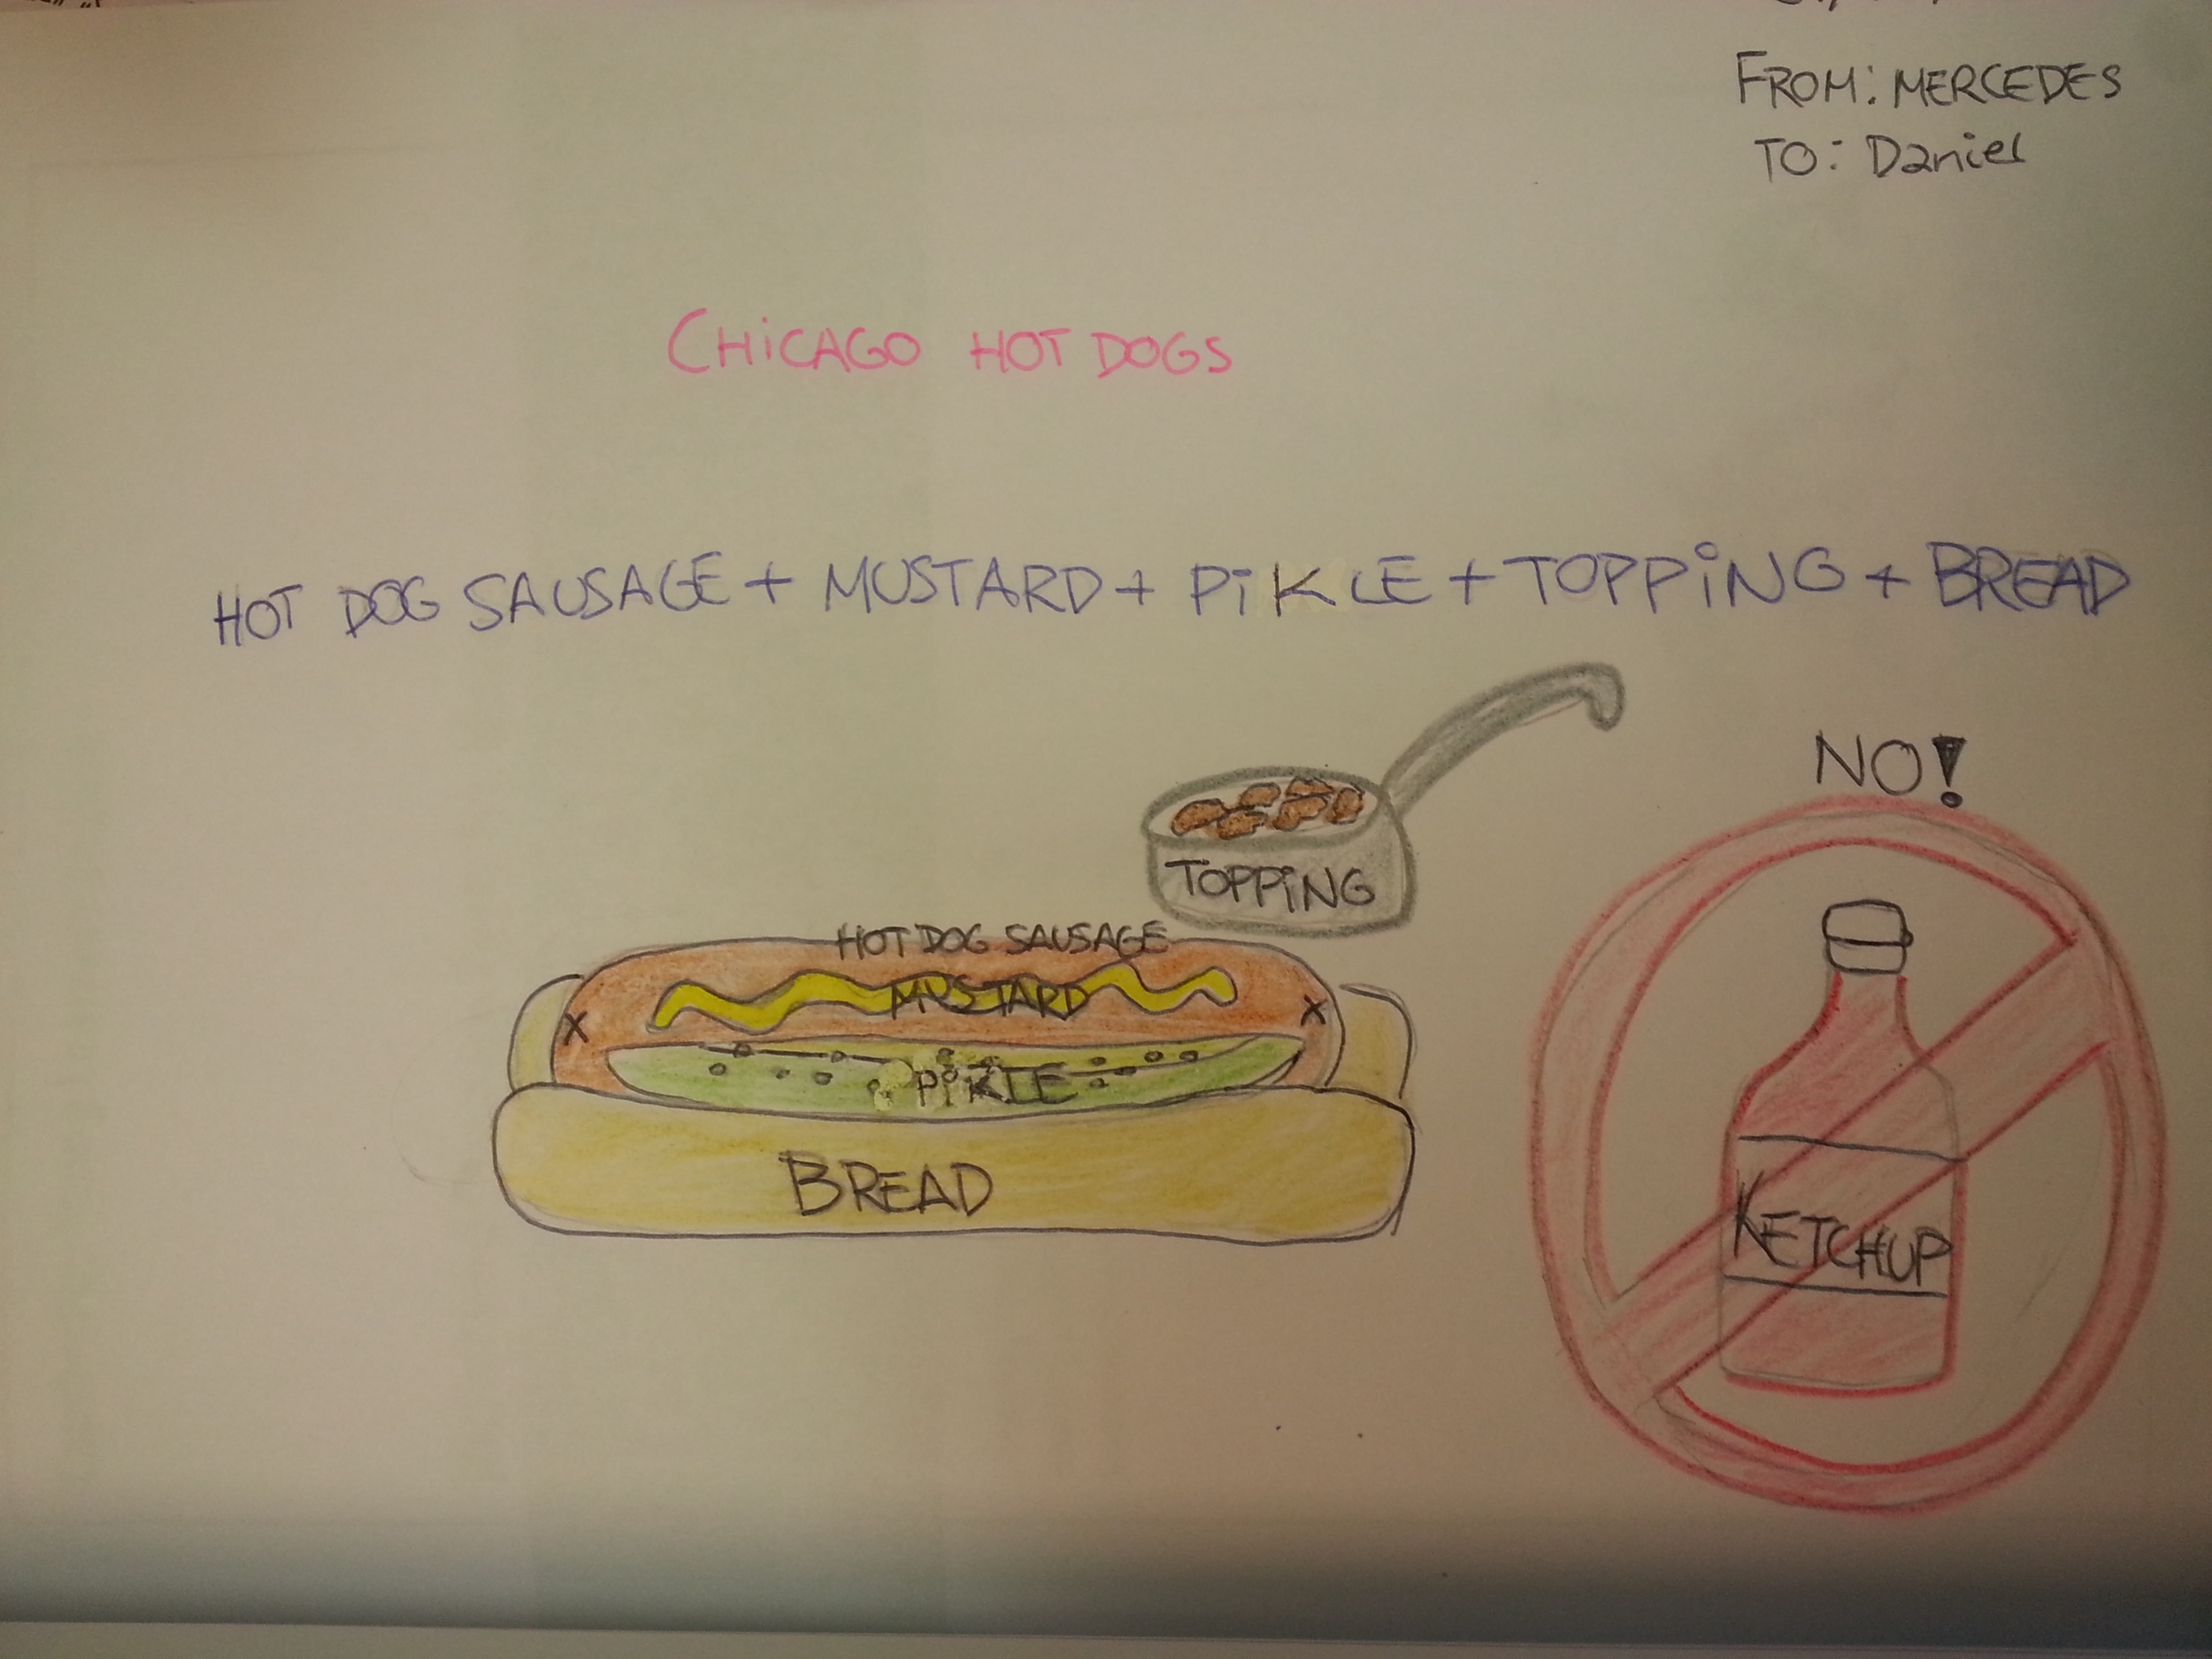 FROM: MERCEDES
TO: Daniel
CHiCAGO HOT DOGS
HOT DOG SAUSAGE + MUSTARD + PiKLE + TOPPiNG + BREAD
NO!
TOPPiNG
HOT DOG SAUSAGE
MUSTARD
PiKLE
BREAD
KETCHUP